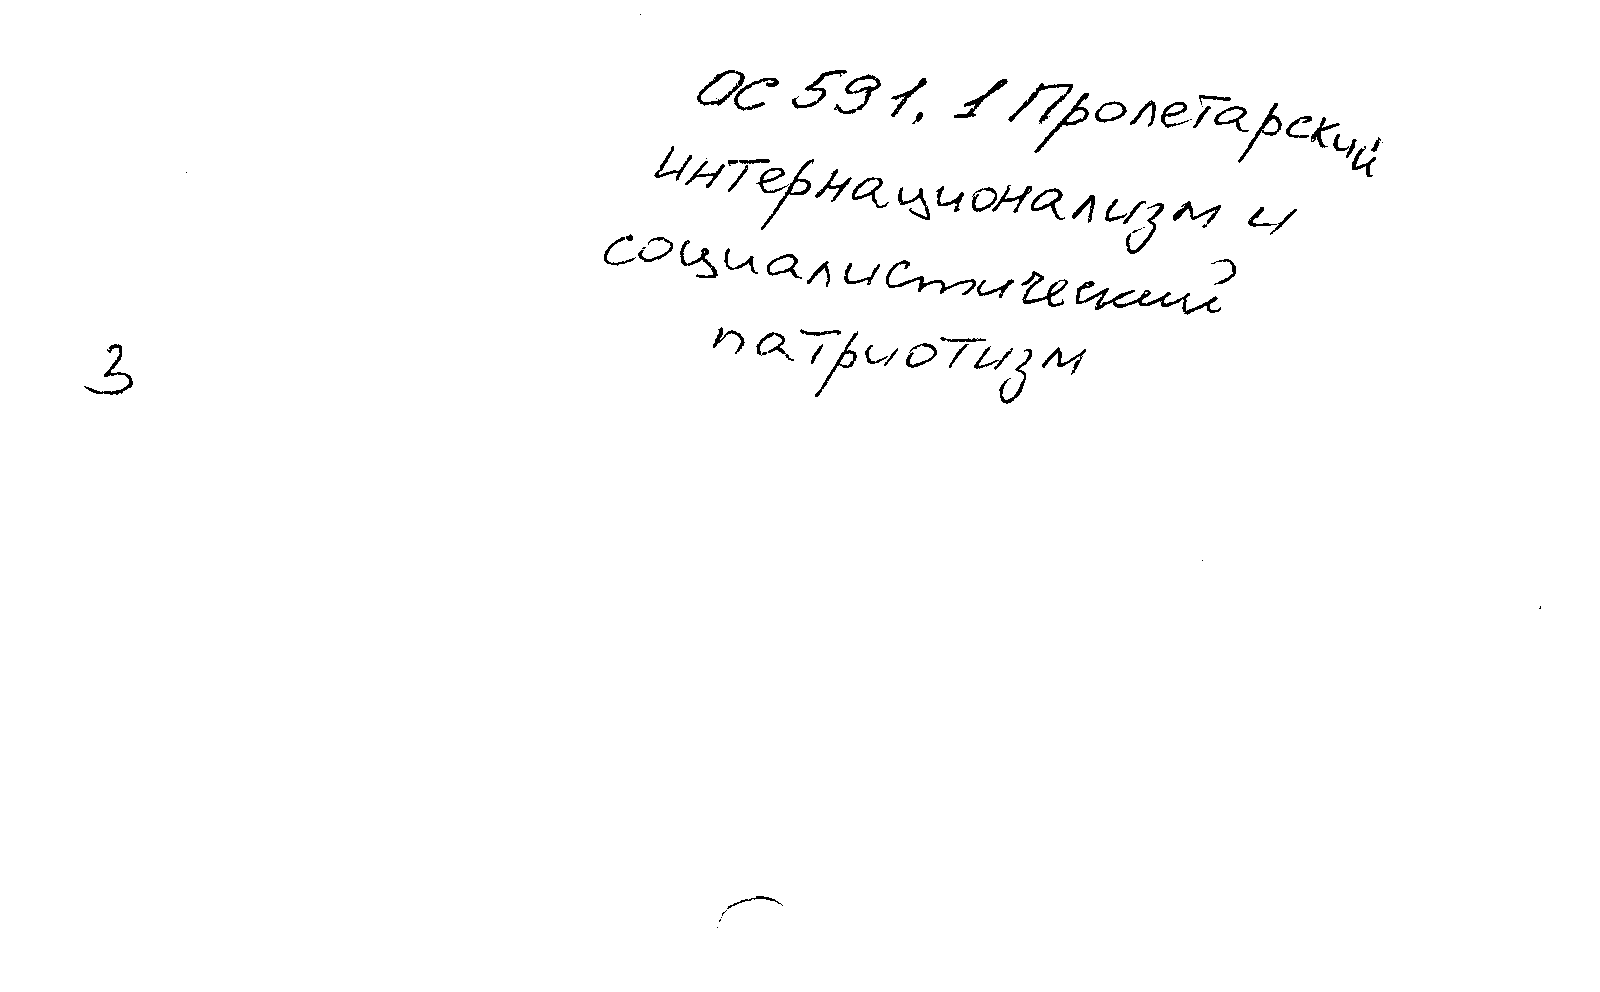 ОС 591.1 Пролетарский
интернационализм и
социалистический
патриотизм
3